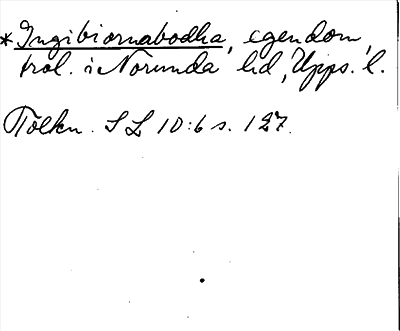 *Ingibiornabodha, egendom,
trol. i Norunda hd, Upps. l.
Tolkn. SL 10:6 s. 127.